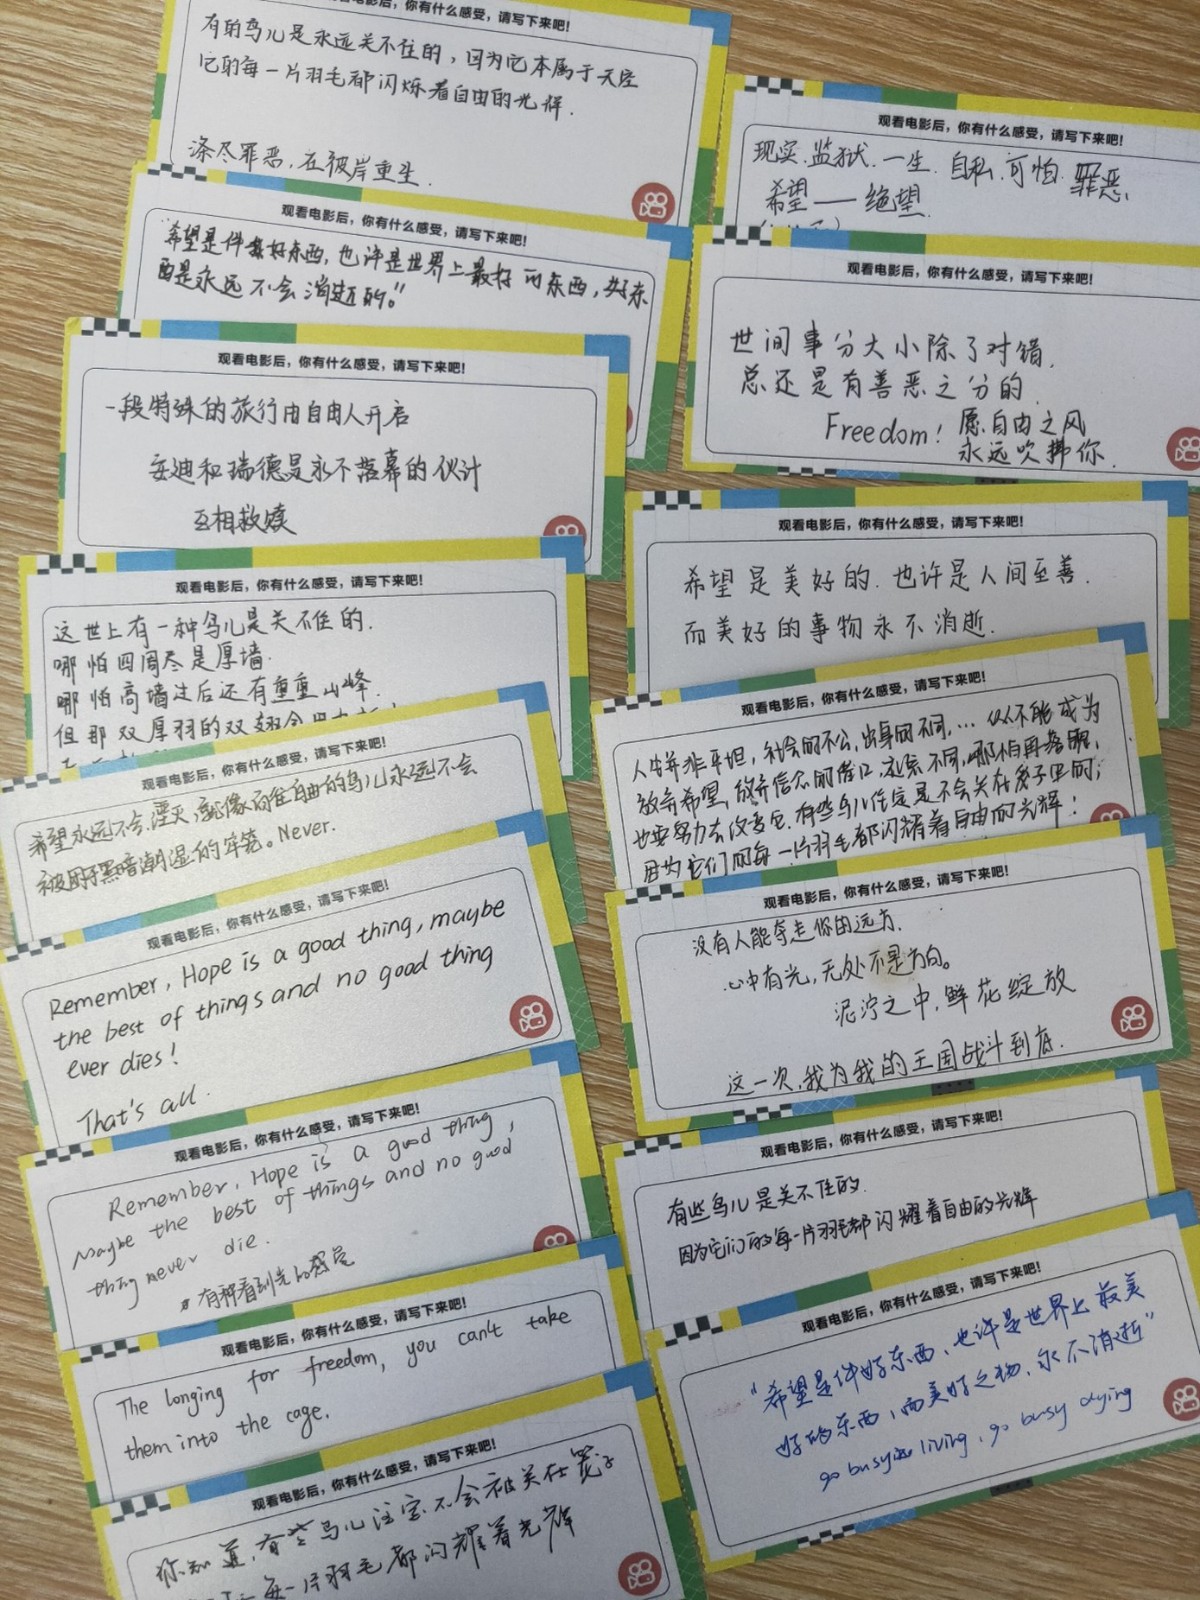 观看电影后，你有什么感受，请写下来吧！
有的鸟儿是永远关不住的，因为它本属于天空
它的每一片羽毛都闪烁着自由的光辉.
涤尽罪恶,在彼岸重生.
观看电影后，你有什么感受，请写下来吧！
"希望是件 好东西，也许是世界上最好的东西，好东
西是永远不会消逝的。"
观看电影后，你有什么感受，请写下来吧！
一段特殊的旅行由自由人开启
安迪和瑞德是永不落幕的伙计
互相救赎
观看电影后，你有什么感受，请写下来吧！
这世上有一种鸟儿是关不住的.
哪怕四周尽是厚墙.
哪怕高墙过后还有重重山峰.
但那双厚羽的双翅会
观看电影后，你有什么感受，请写下来吧！
希望永远不会湮灭,就像向往自由的鸟儿永远不会
被 黑暗潮湿的牢笼。Never.
观看电影后，你有什么感受，请写下来吧！
Remember, Hope is a good thing, maybe
the best of things and no good thing
ever dies!
That's all.
观看电影后，你有什么感受，请写下来吧！
Remember, Hope is a good thing,
Maybe the best of things and no good
thing never die.
有种看到光的感觉
观看电影后，你有什么感受，请写下来吧！
The longing for freedom, you can't take
them into the cage.
观看电影后，你有什么感受，请写下来吧！
你知道,有些鸟儿注定不会被关在笼子
每一片羽毛都闪耀着光辉
观看电影后，你有什么感受，请写下来吧！
现实.监狱.一生.自私.可怕.罪恶.
希望——绝望.
观看电影后，你有什么感受，请写下来吧！
世间事分大小除了对错.
总还是有善恶之分的.
Freedom! 愿自由之风
永远吹拂你.
观看电影后，你有什么感受，请写下来吧！
希望是美好的.也许是人间至善.
而美好的事物永不消逝.
观看电影后，你有什么感受，请写下来吧！
人生并非平坦，社会的不公，出身的不同,… 从不能成为
放弃希望，放弃信念的借口,就算不同,哪怕再落魄,
也要努力去改变它.有些鸟儿注定是不会关在笼子里的;
因为它们的每一片羽毛都闪耀着自由的光辉!
观看电影后，你有什么感受，请写下来吧！
没有人能夺走你的远方.
心中有光,无处不是方向。
泥泞之中,鲜花绽放
这一次,我为我的王国战斗到底.
观看电影后，你有什么感受，请写下来吧！
有些鸟儿是关不住的.
因为它们的每一片羽毛都闪耀着自由的光辉
观看电影后，你有什么感受，请写下来吧！
"希望是件好东西、也许是世界上最美
好的东西,而美好之物,永不消逝"
go busy living, go busy dying